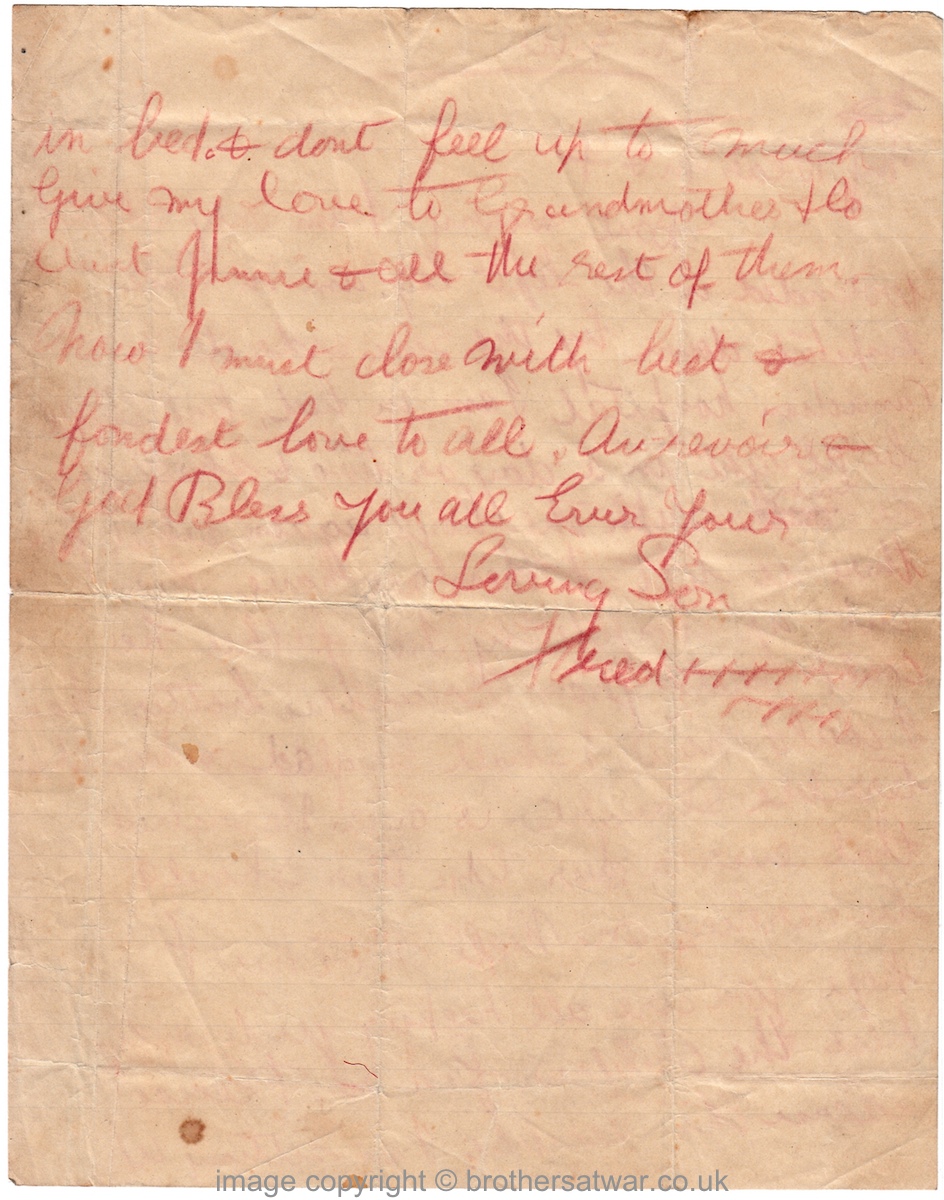 in bed. & dont feel up to much
Give my love to Grandmother & to
Aunt Jinnie & all the rest of them.
Now I must close with best &
fondest love to all. Au-revoir &
God Bless You all Ever Your
Loving Son
Fred xxxxxxxxx
xxxxx
image copyright © brothersatwar.co.uk